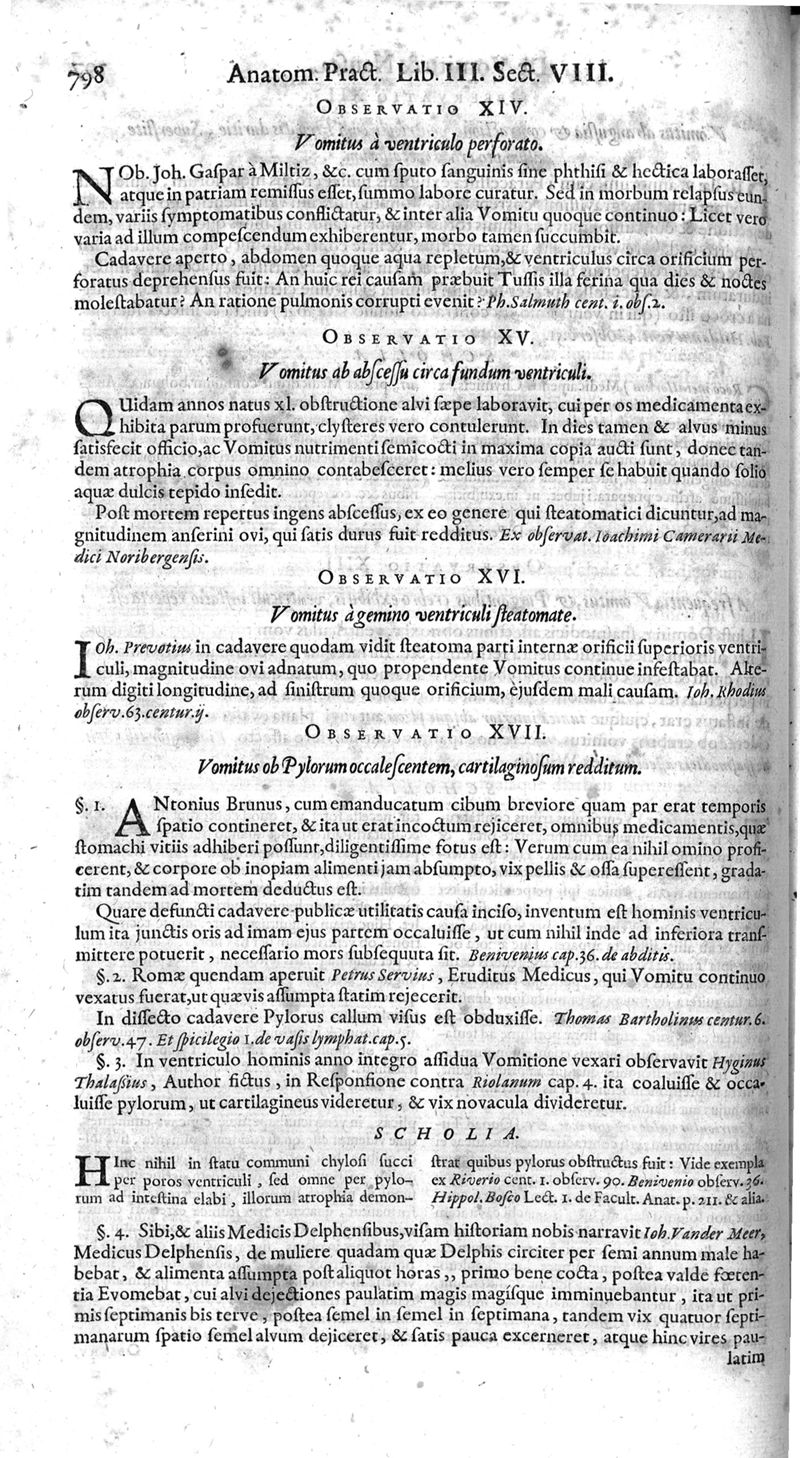 798 Anatom. Pract. Lib. III. Sect. VIII.
OBSERVATIO XIV.
Vomitus à ventriculo perforato.
NOb. Joh. Gaſpar à Miltiz, &c. cum ſputo ſanguinis ſine phthiſi & hectica laboraſſet,
atque in patriam remiſſus eſſet, ſummo labore curatur. Sed in morbum relapſus eun-
dem, variis ſymptomatibus conflictatur, & inter alia Vomitu quoque continuo: Licet vero
varia ad illum compeſcendum exhiberentur, morbo tamen ſuccumbit.
Cadavere aperto, abdomen quoque aqua repletum, & ventriculus circa orificium per-
foratus deprehenſus fuit: An huic rei cauſam præbuit Tuſſis illa ferina qua dies & noctes
moleſtabatur? An ratione pulmonis corrupti evenit? Ph. Salmuth cent. i. obſ. 2.
OBSERVATIO XV.
Vomitus ab abſceſſu circa fundum ventriculi.
QUidam annos natus xl. obſtructione alvi ſæpe laboravit, cui per os medicamenta ex-
hibita parum profuerunt, clyſteres vero contulerunt. In dies tamen & alvus minus
ſatisfecit officio, ac Vomitus nutrimenti ſemicocti in maxima copia aucti ſunt, donec tan-
dem atrophia corpus omnino contabeſceret: melius vero ſemper ſe habuit quando ſolio
aquæ dulcis tepido inſedit.
Poſt mortem repertus ingens abſceſſus, ex eo genere qui ſteatomatici dicuntur, ad ma-
gnitudinem anſerini ovi, qui ſatis durus fuit redditus. Ex obſervat. Ioachimi Camerarii Me-
dici Noribergenſis.
OBSERVATIO XVI.
Vomitus à gemino ventriculi ſteatomate.
IOh. Prevotius in cadavere quodam vidit ſteatoma parti internæ orificii ſuperioris ventri-
culi, magnitudine ovi adnatum, quo propendente Vomitus continue infeſtabat. Alte-
rum digiti longitudine, ad ſiniſtrum quoque orificium, ejuſdem mali cauſam. Ioh. Rhodius
obſerv. 63. centur. ij.
OBSERVATIO XVII.
Vomitus ob Pylorum occaleſcentem, cartilaginoſum redditum.
§. 1. ANtonius Brunus, cum emanducatum cibum breviore quam par erat temporis
ſpatio contineret, & ita ut erat incoctum rejiceret, omnibus medicamentis, quæ
ſtomachi vitiis adhiberi poſſunt, diligentiſſime fotus eſt: Verum cum ea nihil omino profi-
cerent, & corpore ob inopiam alimenti jam abſumpto, vix pellis & oſſa ſupereſſent, grada-
tim tandem ad mortem deductus eſt.
Quare defuncti cadavere publicæ utilitatis cauſa inciſo, inventum eſt hominis ventricu-
lum ita junctis oris ad imam ejus partem occaluiſſe, ut cum nihil inde ad inferiora tranſ-
mittere potuerit, neceſſario mors ſubſequuta ſit. Benivenius cap. 36. de abditis.
§. 2. Romæ quendam aperuit Petrus Servius, Eruditus Medicus, qui Vomitu continuo
vexatus fuerat, ut quævis aſſumpta ſtatim rejecerit.
In diſſecto cadavere Pylorus callum viſus eſt obduxiſſe. Thomas Bartholinus centur. 6.
obſerv. 47. Et ſpicilegio 1. de vaſis lymphat. cap. 5.
§. 3. In ventriculo hominis anno integro aſſidua Vomitione vexari obſervavit Hyginus
Thalaſſius, Author fictus, in Reſponſione contra Riolanum cap. 4. ita coaluiſſe & occa-
luiſſe pylorum, ut cartilagineus videretur, & vix novacula divideretur.
SCHOLIA.
HInc nihil in ſtatu communi chyloſi ſucci
per poros ventriculi, ſed omne per pylo-
rum ad inteſtina elabi, illorum atrophia demon-
ſtrat quibus pylorus obſtructus fuit: Vide exempla
ex Riverio cent. 1. obſerv. 90. Benivenio obſerv. 36.
Hippol. Boſco Lect. 1. de Facult. Anat. p. 211. & alia.
§. 4. Sibi, & aliis Medicis Delphenſibus, viſam hiſtoriam nobis narravit Ioh. Vander Meer,
Medicus Delphenſis, de muliere quadam quæ Delphis circiter per ſemi annum male ha-
bebat, & alimenta aſſumpta poſt aliquot horas,, primo bene cocta, poſtea valde fœten-
tia Evomebat, cui alvi dejectiones paulatim magis magiſque imminuebantur, ita ut pri-
mis ſeptimanis bis terve, poſtea ſemel in ſemel in ſeptimana, tandem vix quatuor ſepti-
manarum ſpatio ſemel alvum dejiceret, & ſatis pauca excerneret, atque hinc vires pau-
latim